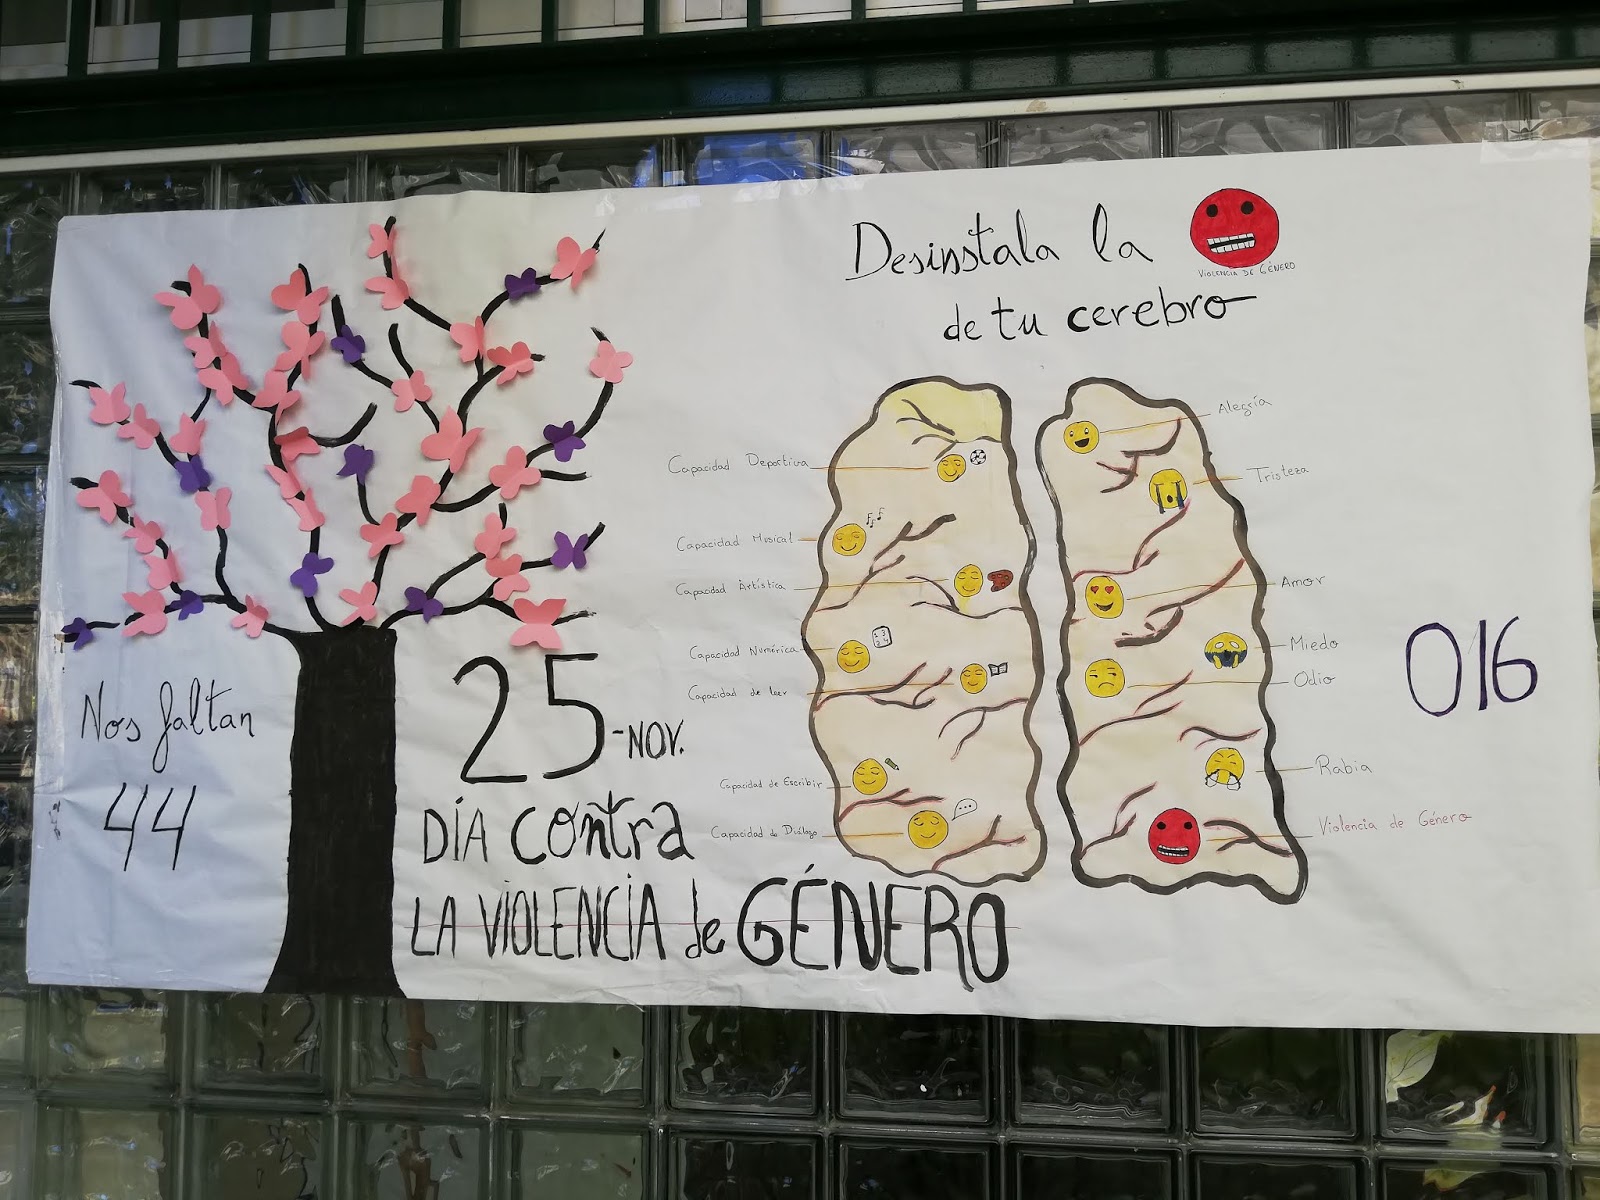 Desinstala la
VIOLENCIA DE GÉNERO
de tu cerebro
Nos faltan
44
25-NOV.
DÍA contra
LA VIOLENCIA de GÉNERO
Capacidad Deportiva
Capacidad Musical
Capacidad Artística
Capacidad Numérica
1 3
2 4
Capacidad de leer
Capacidad de Escribir
Capacidad de Diálogo
Alegría
Tristeza
Amor
Miedo
Odio
Rabia
Violencia de Género
016